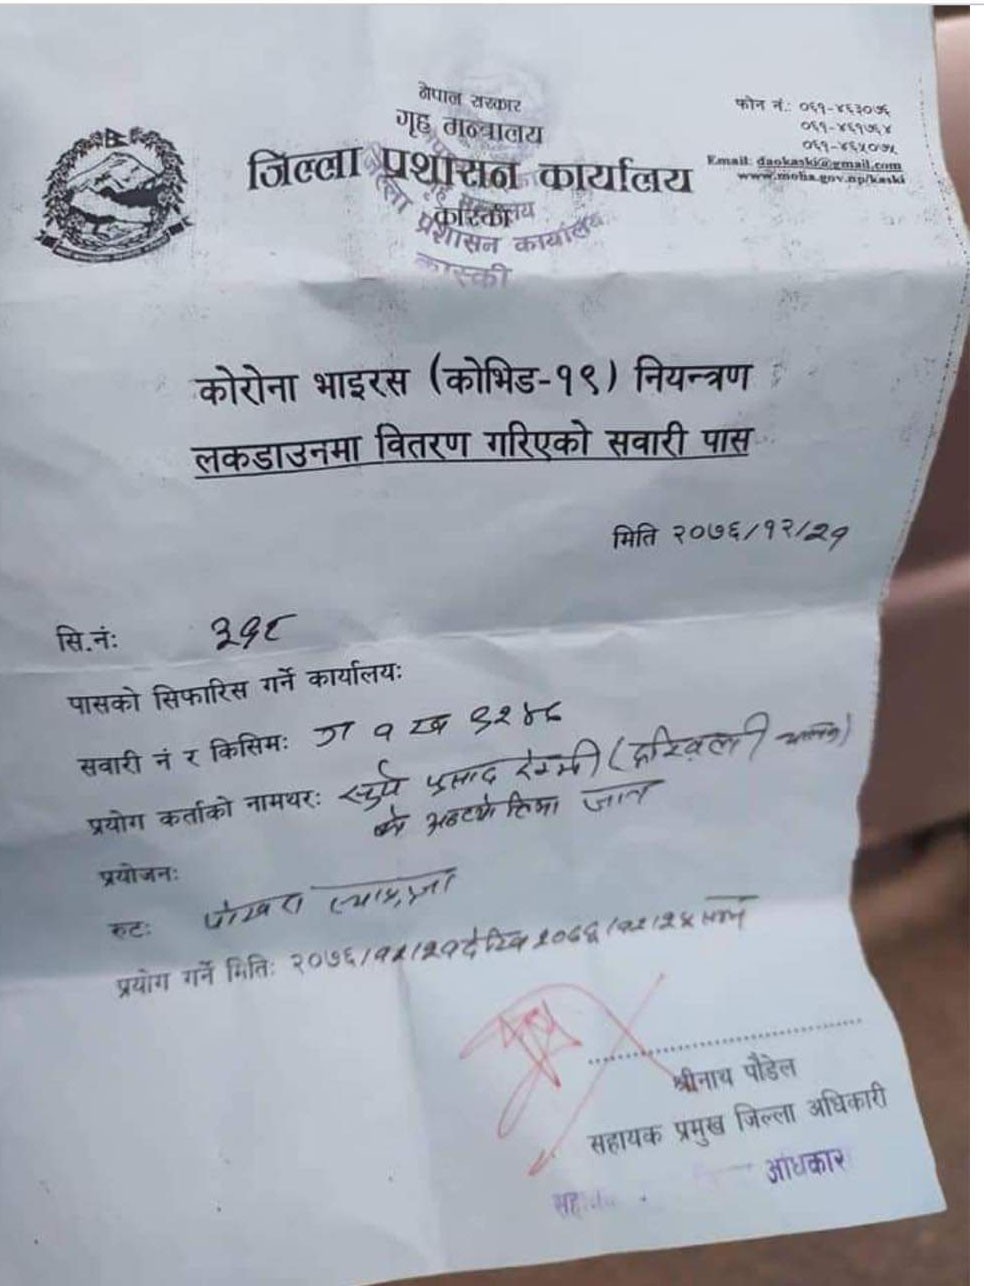 नेपाल सरकार
गृह मन्त्रालय
जिल्ला प्रशासन कार्यालय
कास्की
फोन नं.: ०६१-४६३०७६
०६१-४६१७६४
०६१-४६५०७५
Email: daokaski@gmail.com
www.moha.gov.np/kaski
गृह मन्त्रालय
जिल्ला प्रशासन कार्यालय
कास्की
कोरोना भाइरस (कोभिड-१९) नियन्त्रण
लकडाउनमा वितरण गरिएको सवारी पास
मिति २०७६/१२/२१
सि.नं: ३१८
पासको सिफारिस गर्ने कार्यालय:
सवारी नं र किसिम: ग १ ख ९२४८
प्रयोग कर्ताको नामथर: सुर्य प्रसाद रेग्मी (
जान
प्रयोजन:
रुट: पोखरा स्याङ्जा
प्रयोग गर्ने मिति: २०७६/१२/२१ देखि २०७६/१२/२५ सम्म
श्रीनाथ पौडेल
सहायक प्रमुख जिल्ला अधिकारी